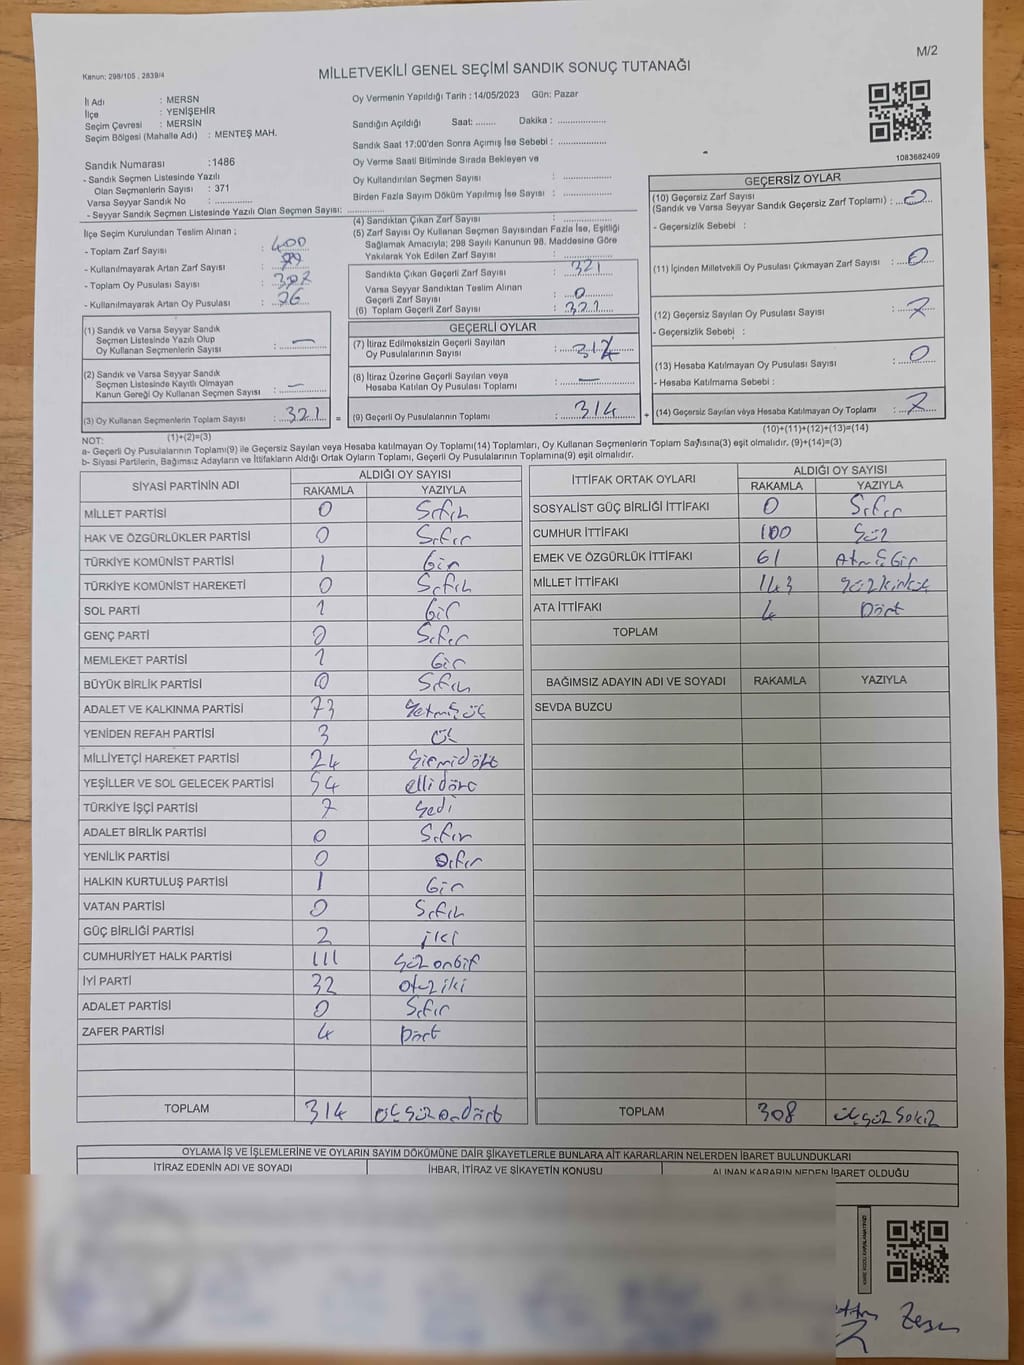 M/2
Kanun: 298/105 , 2839/4
MİLLETVEKİLİ GENEL SEÇİMİ SANDIK SONUÇ TUTANAĞI
İl Adı : MERSN
İlçe : YENİŞEHİR
Seçim Çevresi : MERSİN
Seçim Bölgesi (Mahalle Adı) : MENTEŞ MAH.
Sandık Numarası :1486
- Sandık Seçmen Listesinde Yazılı
Olan Seçmenlerin Sayısı : 371
Varsa Seyyar Sandık No : ..............
- Seyyar Sandık Seçmen Listesinde Yazılı Olan Seçmen Sayısı: ..............
İlçe Seçim Kurulundan Teslim Alınan ;
- Toplam Zarf Sayısı : 400
- Kullanılmayarak Artan Zarf Sayısı :
- Toplam Oy Pusulası Sayısı :
- Kullanılmayarak Artan Oy Pusulası :
(1) Sandık ve Varsa Seyyar Sandık
Seçmen Listesinde Yazılı Olup
Oy Kullanan Seçmenlerin Sayısı : —
(2) Sandık ve Varsa Seyyar Sandık
Seçmen Listesinde Kayıtlı Olmayan
Kanun Gereği Oy Kullanan Seçmen Sayısı : —
(3) Oy Kullanan Seçmenlerin Toplam Sayısı : 321 =
(1)+(2)=(3)
Oy Vermenin Yapıldığı Tarih : 14/05/2023 Gün: Pazar
Sandığın Açıldığı Saat: ........ Dakika : ..................
Sandık Saat 17:00'den Sonra Açımış İse Sebebi : ..................
Oy Verme Saati Bitiminde Sırada Bekleyen ve
Oy Kullandırılan Seçmen Sayısı : ..................
Birden Fazla Sayım Döküm Yapılmış İse Sayısı : ..................
(4) Sandıktan Çıkan Zarf Sayısı : ..................
(5) Zarf Sayısı Oy Kullanan Seçmen Sayısından Fazla İse, Eşitliği
Sağlamak Amacıyla; 298 Sayılı Kanunun 98. Maddesine Göre
Yakılarak Yok Edilen Zarf Sayısı : ..................
Sandıkta Çıkan Geçerli Zarf Sayısı : 321
Varsa Seyyar Sandıktan Teslim Alınan
Geçerli Zarf Sayısı : 0
(6) Toplam Geçerli Zarf Sayısı : 321
GEÇERLİ OYLAR
(7) İtiraz Edilmeksizin Geçerli Sayılan
Oy Pusulalarının Sayısı :
(8) İtiraz Üzerine Geçerli Sayılan veya
Hesaba Katılan Oy Pusulası Toplamı : —
(9) Geçerli Oy Pusulalarının Toplamı : 314 +
1083682409
GEÇERSİZ OYLAR
(10) Geçersiz Zarf Sayısı
(Sandık ve Varsa Seyyar Sandık Geçersiz Zarf Toplamı) : 0
- Geçersizlik Sebebi :
(11) İçinden Milletvekili Oy Pusulası Çıkmayan Zarf Sayısı : 0
(12) Geçersiz Sayılan Oy Pusulası Sayısı : 7
- Geçersizlik Sebebi :
(13) Hesaba Katılmayan Oy Pusulası Sayısı : 0
- Hesaba Katılmama Sebebi :
(14) Geçersiz Sayılan veya Hesaba Katılmayan Oy Toplamı : 7
(10)+(11)+(12)+(13)=(14)
NOT:
a- Geçerli Oy Pusulalarının Toplamı(9) ile Geçersiz Sayılan veya Hesaba katılmayan Oy Toplamı(14) Toplamları, Oy Kullanan Seçmenlerin Toplam Sayısına(3) eşit olmalıdır. (9)+(14)=(3)
b- Siyasi Partilerin, Bağımsız Adayların ve İttifakların Aldığı Ortak Oyların Toplamı, Geçerli Oy Pusulalarının Toplamına(9) eşit olmalıdır.
SİYASİ PARTİNİN ADI ALDIĞI OY SAYISI
RAKAMLA YAZIYLA
MİLLET PARTİSİ 0 Sıfır
HAK VE ÖZGÜRLÜKLER PARTİSİ 0 Sıfır
TÜRKİYE KOMÜNİST PARTİSİ 1 Bir
TÜRKİYE KOMÜNİST HAREKETİ 0 Sıfır
SOL PARTİ 1 Bir
GENÇ PARTİ 0 Sıfır
MEMLEKET PARTİSİ 1 Bir
BÜYÜK BİRLİK PARTİSİ 0 Sıfır
ADALET VE KALKINMA PARTİSİ 73 Yetmiş üç
YENİDEN REFAH PARTİSİ 3 Üç
MİLLİYETÇİ HAREKET PARTİSİ 24 Yirmidört
YEŞİLLER VE SOL GELECEK PARTİSİ 54 ellidört
TÜRKİYE İŞÇİ PARTİSİ 7 Yedi
ADALET BİRLİK PARTİSİ 0 Sıfır
YENİLİK PARTİSİ 0 Sıfır
HALKIN KURTULUŞ PARTİSİ 1 Bir
VATAN PARTİSİ 0 Sıfır
GÜÇ BİRLİĞİ PARTİSİ 2 iki
CUMHURİYET HALK PARTİSİ 111 Yüz onbir
İYİ PARTİ 32 otuz iki
ADALET PARTİSİ 0 Sıfır
ZAFER PARTİSİ 4 Dört
TOPLAM 314 üç yüz on dört
İTTİFAK ORTAK OYLARI ALDIĞI OY SAYISI
RAKAMLA YAZIYLA
SOSYALİST GÜÇ BİRLİĞİ İTTİFAKI 0 Sıfır
CUMHUR İTTİFAKI 100 Yüz
EMEK VE ÖZGÜRLÜK İTTİFAKI 61 Atmış Bir
MİLLET İTTİFAKI 143
ATA İTTİFAKI 4 Dört
TOPLAM
BAĞIMSIZ ADAYIN ADI VE SOYADI RAKAMLA YAZIYLA
SEVDA BUZCU
TOPLAM 308 üç yüz Sekiz
OYLAMA İŞ VE İŞLEMLERİNE VE OYLARIN SAYIM DÖKÜMÜNE DAİR ŞİKAYETLERLE BUNLARA AİT KARARLARIN NELERDEN İBARET BULUNDUKLARI
İTİRAZ EDENİN ADI VE SOYADI İHBAR, İTİRAZ VE ŞİKAYETİN KONUSU ALINAN KARARIN NEDEN İBARET OLDUĞU